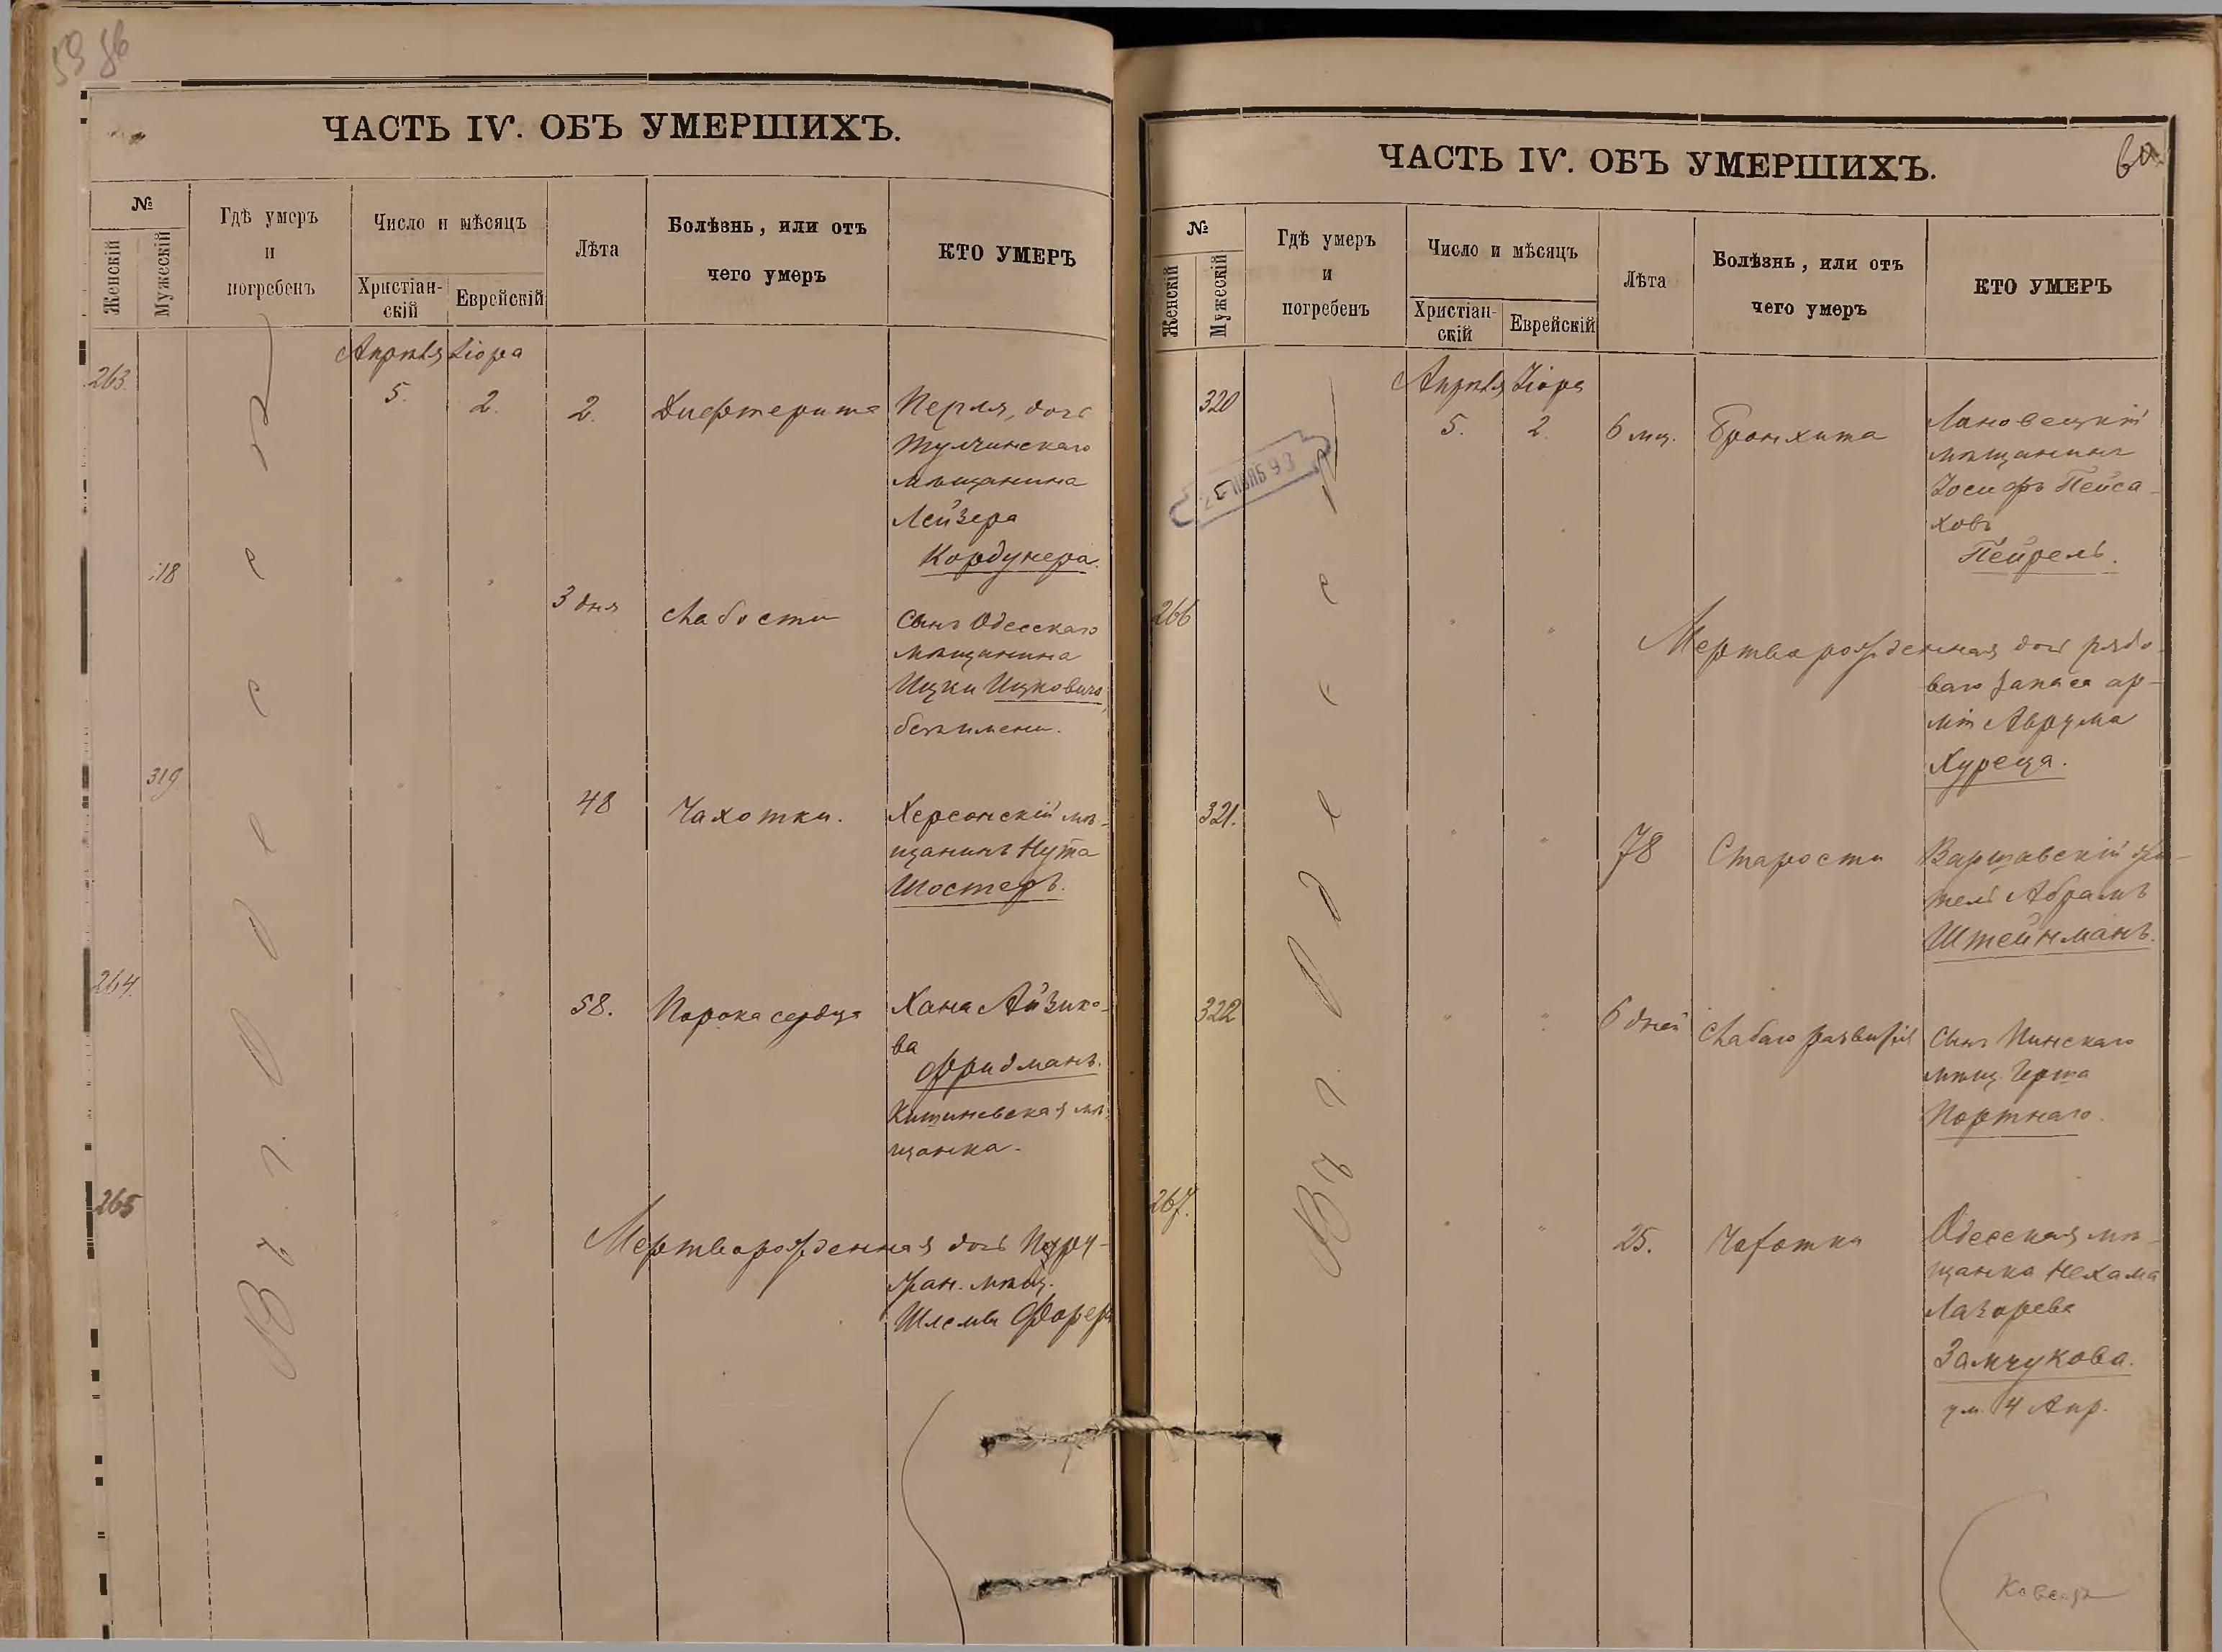 59 56
ЧАСТЬ IV. ОБЪ УМЕРШИХЪ.
№
Женскій
Мужескій
Гдѣ умеръ
и
погребенъ
Число и мѣсяцъ
Христіан-
скій
Еврейскій
Лѣта
Болѣзнь, или отъ
чего умеръ
КТО УМЕРЪ
Въ г. Одессѣ
Апрѣля Ііора
263. 5. 2. 2. Дифтерита Перля, дочь
Тульчинскаго
мѣщанина
Лейзера
Кордунера.
318 " " 3 дня Слабости Сынъ Одесскаго
мѣщанина
Ицки Ицковича,
безъ имени.
319 " " 48 Чахотки. Херсонскій мѣ-
щанинъ Нута
Шостеръ.
264. " " 58. Порока сердца Хана Айзико-
ва
Фридманъ.
Кишиневская мѣ-
щанка.
265 " " Мертворожденная дочь
гран. мѣщ.
Шлемы
ЧАСТЬ IV. ОБЪ УМЕРШИХЪ.
60
№
Женскій
Мужескій
Гдѣ умеръ
и
погребенъ
Число и мѣсяцъ
Христіан-
скій
Еврейскій
Лѣта
Болѣзнь, или отъ
чего умеръ
КТО УМЕРЪ
Въ г. Одессѣ
Апрѣля Ііора
320 5. 2. 6 мц. Бронхита Лановецкій
мѣщанинъ
Іосифъ Пейса-
ховъ
Пейрель.
266 " " Мертворожденная дочь рядо-
ваго запаса ар-
міи Аврума
Хуреца.
321. " " 78 Старости Варшавскій жи-
тель Абрамъ
Штейнманъ.
322 " " 6 дней Слабаго развитія Сынъ Пинскаго
мѣщ. Герша
Портнаго.
267. " " 25. Чахотки Одесская мѣ-
щанка Нехама
Лазарева
Замчукова.
ум. 4 Апр.